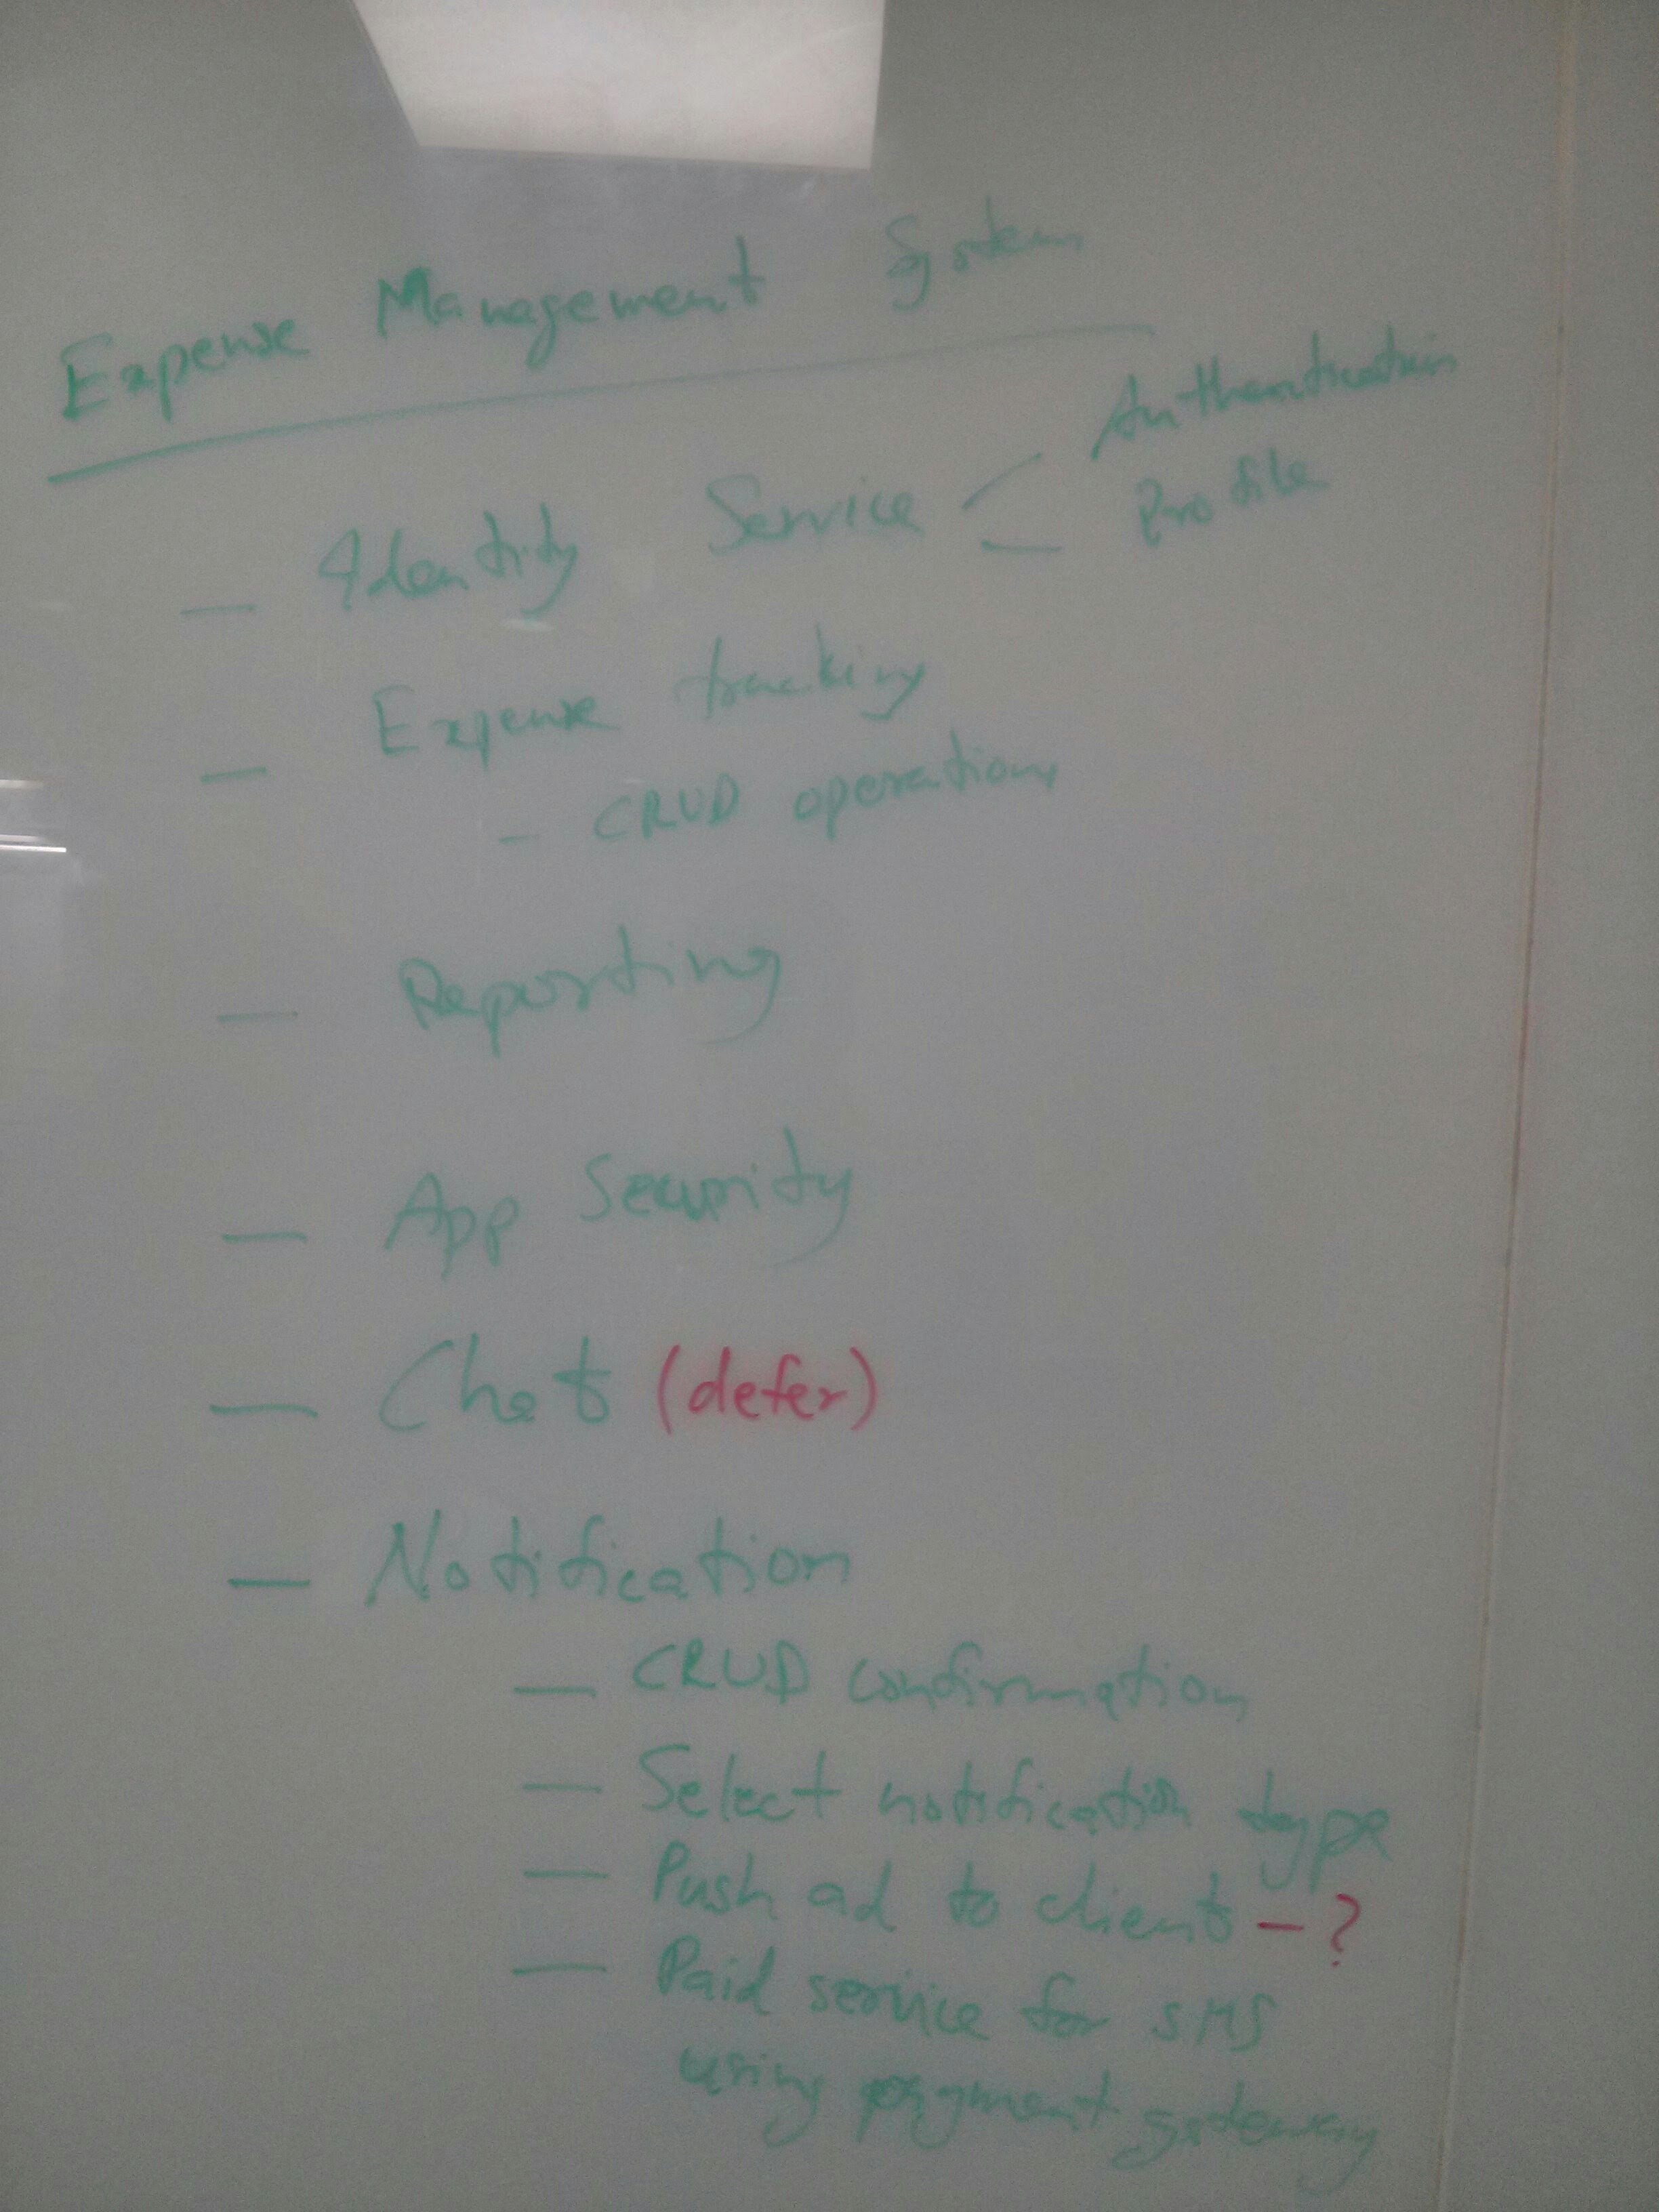 Expense Management System
— Identity Service < Authentication
— Profile
— Expense tracking
- CRUD operations
— Reporting
— App Security
— Chat (defer)
— Notification
— CRUD confirmation
— Select notification type
— Push ad to client - ?
— Paid service for SMS
using payment gateway